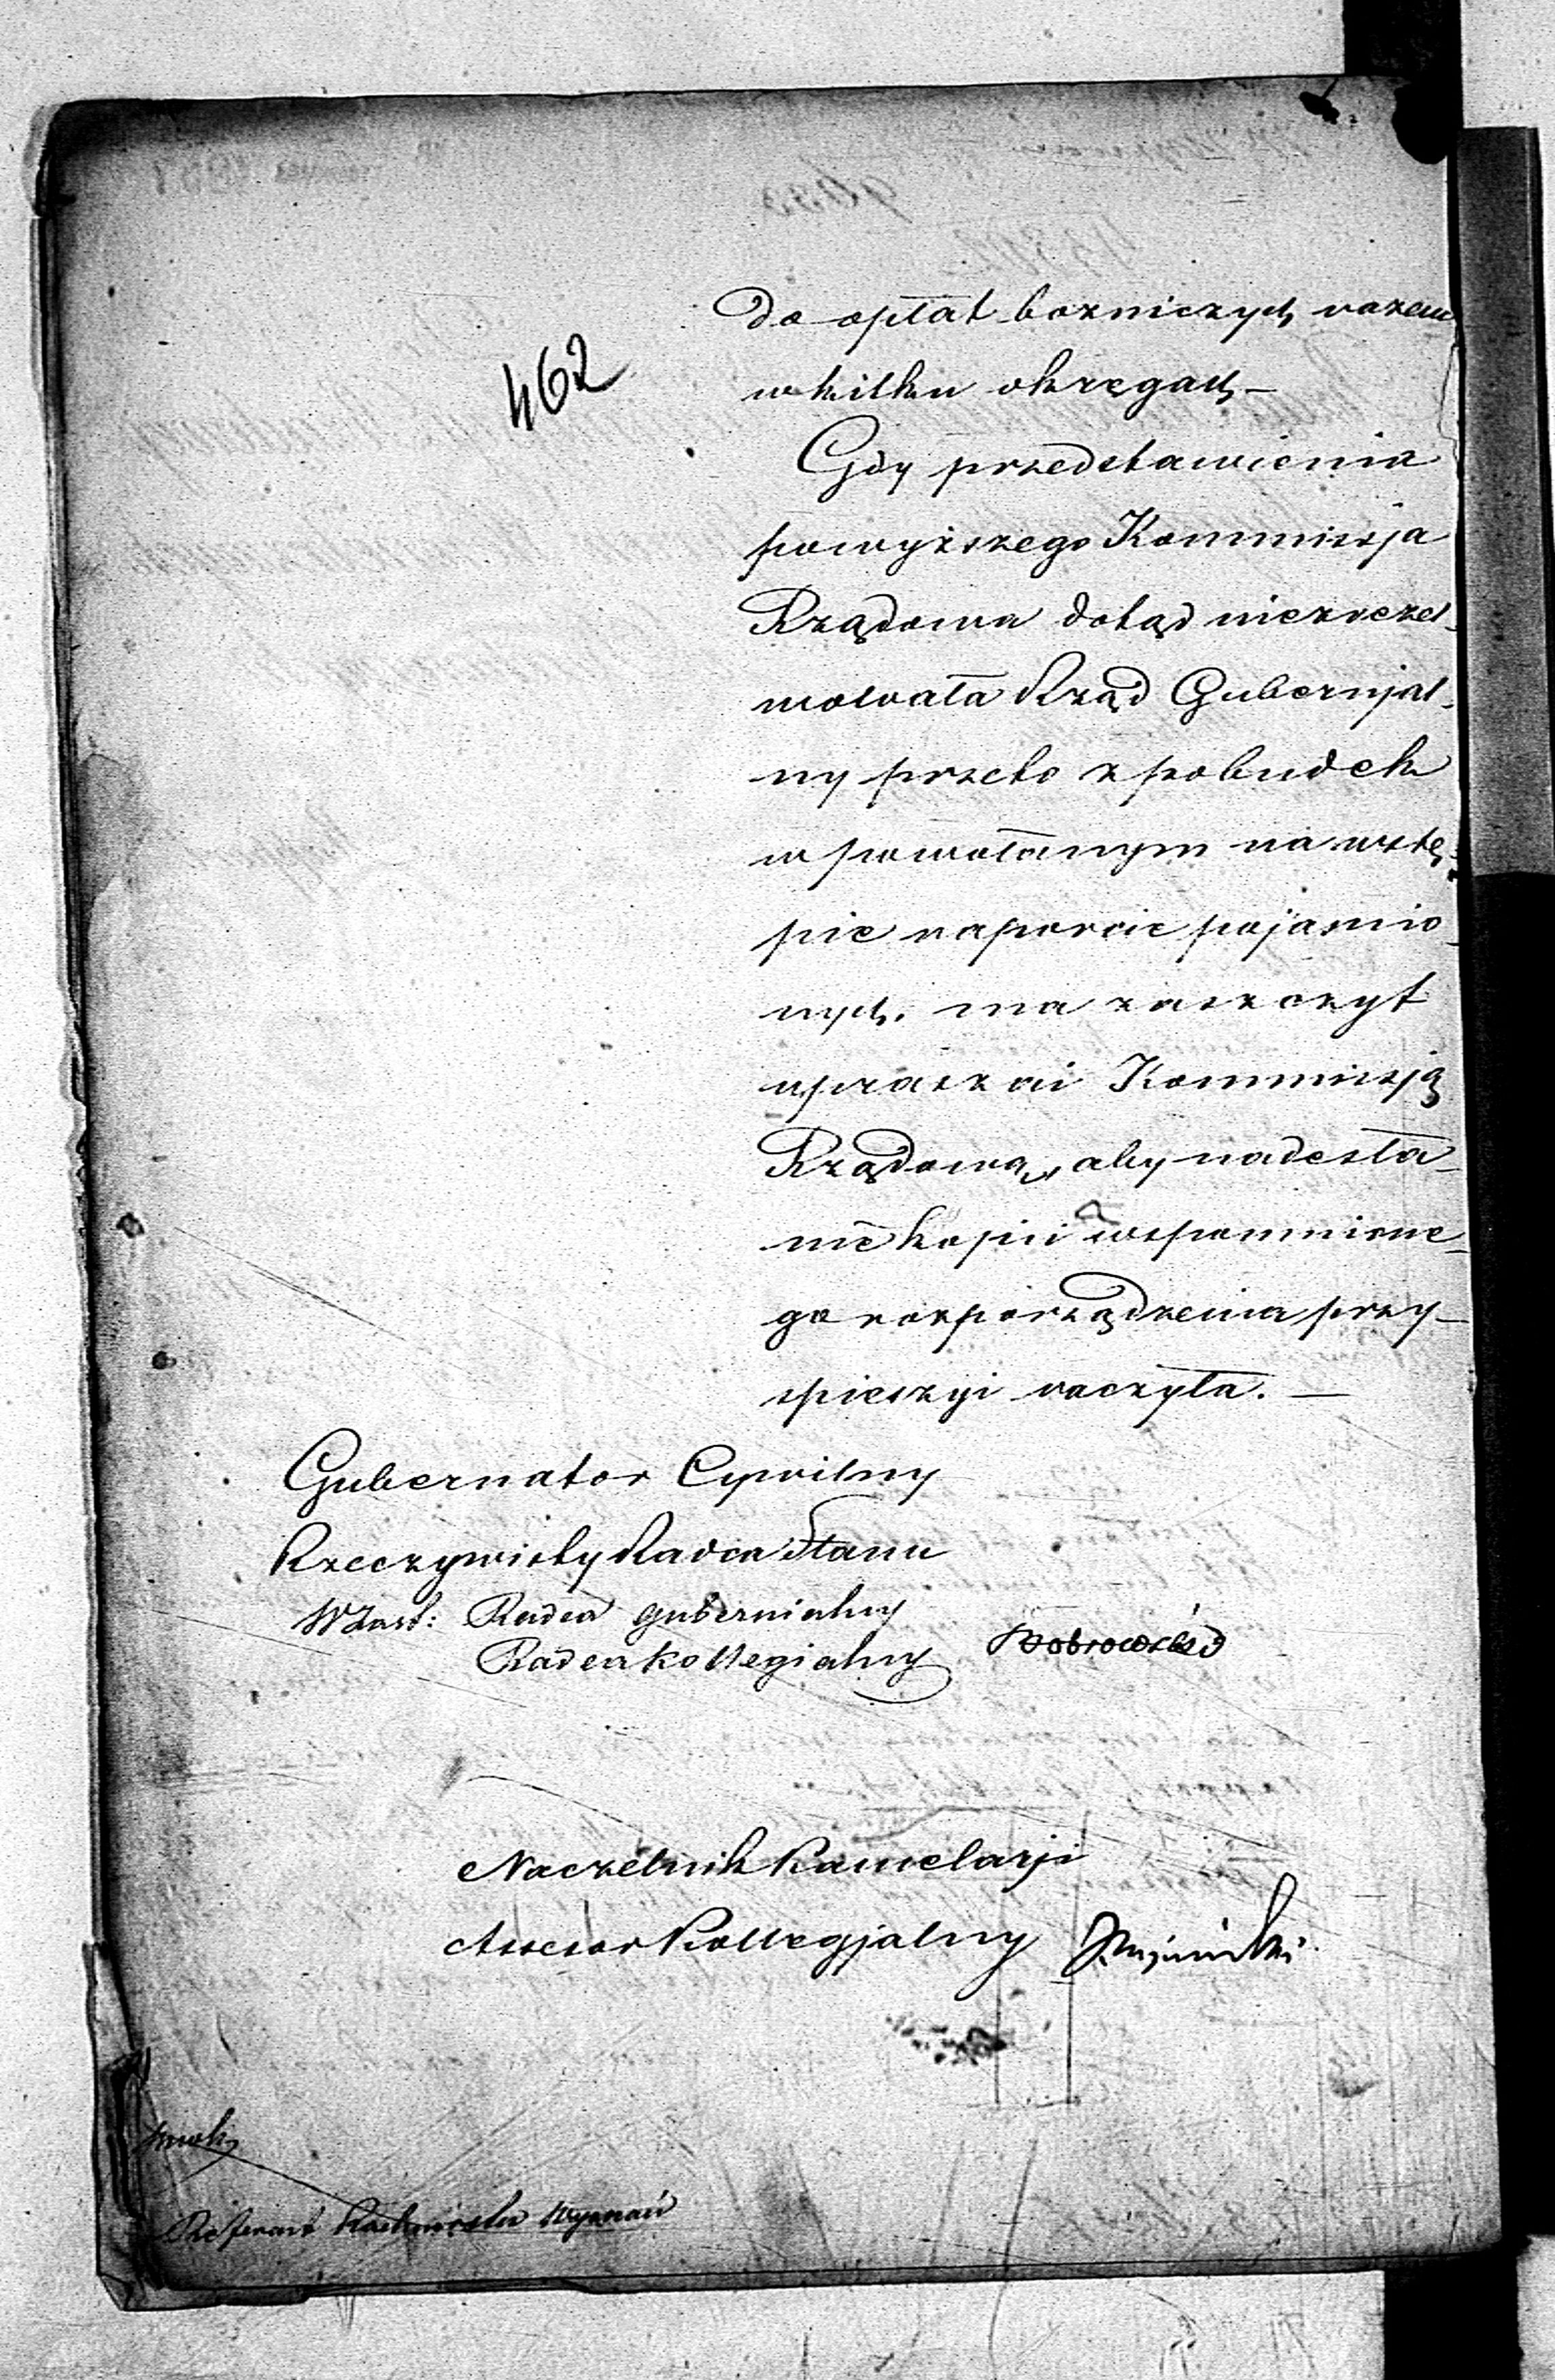 462
do opłat bożniczych razem
w kilku okręgach —
Gdy przedstawienia
powyższego Kommissja
Rządowa dotąd niezrezol-
wowała Rząd Gubernjal-
ny przeto z pobudek
w powołanym na wstę-
pie raporcie pojaśnio-
nych. ma zaszczyt
upraszać Kommissją
Rządową, aby nadesła-
nie kopii wspomnione-
go rozporządzenia przy-
spieszyć raczyła. —
Gubernator Cywilny
Rzeczywisty Radca Stanu
W Zast: Radca Gubernialny
Radca Kollegialny
Naczelnik Kancelarji
Assessor Kollegjalny
Referent Wyznań